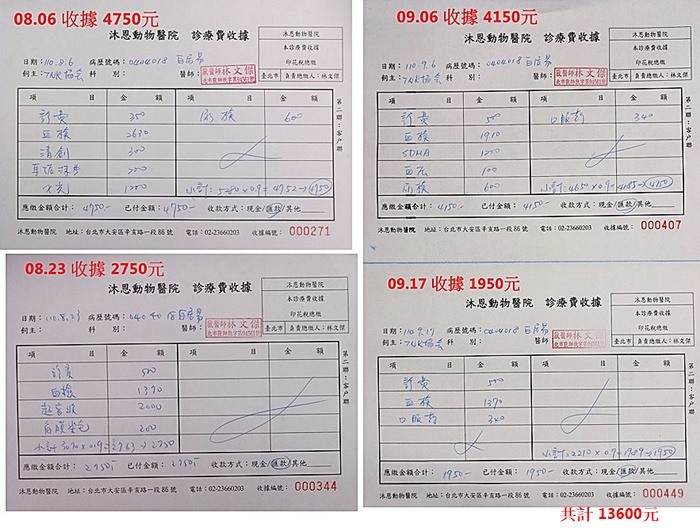 08.06 收據 4750元
沐恩動物醫院 診療費收據
沐恩動物醫院
本診療費收據
印花稅總繳
臺北市 負責總繳人：林文傑
日期：110.8.6 病歷號碼：0404018 白居易
飼主：TNR協會 科別： 醫師： 獸醫師林文傑
項 目 金 額 項 目 金 額
診費 350 尿檢 600
血檢 2630
清創 300
耳道 200
1200
小計：5280×0.9=4752→4750
應繳金額合計：4750- 已付金額：4750- 收款方式：現金/匯款/其他
沐恩動物醫院 地址：台北市大安區辛亥路一段86號 電話：02-23660203 收據編號：000271
第二聯：收執聯
09.06 收據 4150元
沐恩動物醫院 診療費收據
沐恩動物醫院
本診療費收據
印花稅總繳
臺北市 負責總繳人：林文傑
日期：110.9.6 病歷號碼：0404018 白居易
飼主：TNR協會 科別： 醫師： 獸醫師林文傑
項 目 金 額 項 目 金 額
診費 500 口服藥 340
血檢 1910
SDMA 1200
血充 100
尿檢 600
小計：4650×0.9=4185→4150
應繳金額合計：4150- 已付金額：4150- 收款方式：現金/匯款/其他
沐恩動物醫院 地址：台北市大安區辛亥路一段86號 電話：02-23660203 收據編號：000407
08.23 收據 2750元
沐恩動物醫院 診療費收據
沐恩動物醫院
本診療費收據
印花稅總繳
臺北市 負責總繳人：林文傑
日期：110.8.23 病歷號碼：0404018 白居易
飼主：TNR協會 科別： 醫師： 獸醫師林文傑
項 目 金 額 項 目 金 額
診費 500
血檢 1370
超音波 2000
染色 200
小計 3070×0.9=2763→2750
應繳金額合計：2750- 已付金額：2750- 收款方式：現金/匯款/其他
沐恩動物醫院 地址：台北市大安區辛亥路一段86號 電話：02-23660203 收據編號：000344
第二聯：收執聯
09.17 收據 1950元
沐恩動物醫院 診療費收據
沐恩動物醫院
本診療費收據
印花稅總繳
臺北市 負責總繳人：林文傑
日期：110.9.17 病歷號碼：0404018 白居易
飼主：TNR協會 科別： 醫師： 獸醫師林文傑
項 目 金 額 項 目 金 額
診費 500
血檢 1370
口服藥 340
小計：2210×0.9=1989→1950
應繳金額合計：1950- 已付金額：1950- 收款方式：現金/匯款/其他
沐恩動物醫院 地址：台北市大安區辛亥路一段86號 電話：02-23660203 收據編號：000449
第二聯：收執聯
共計 13600元